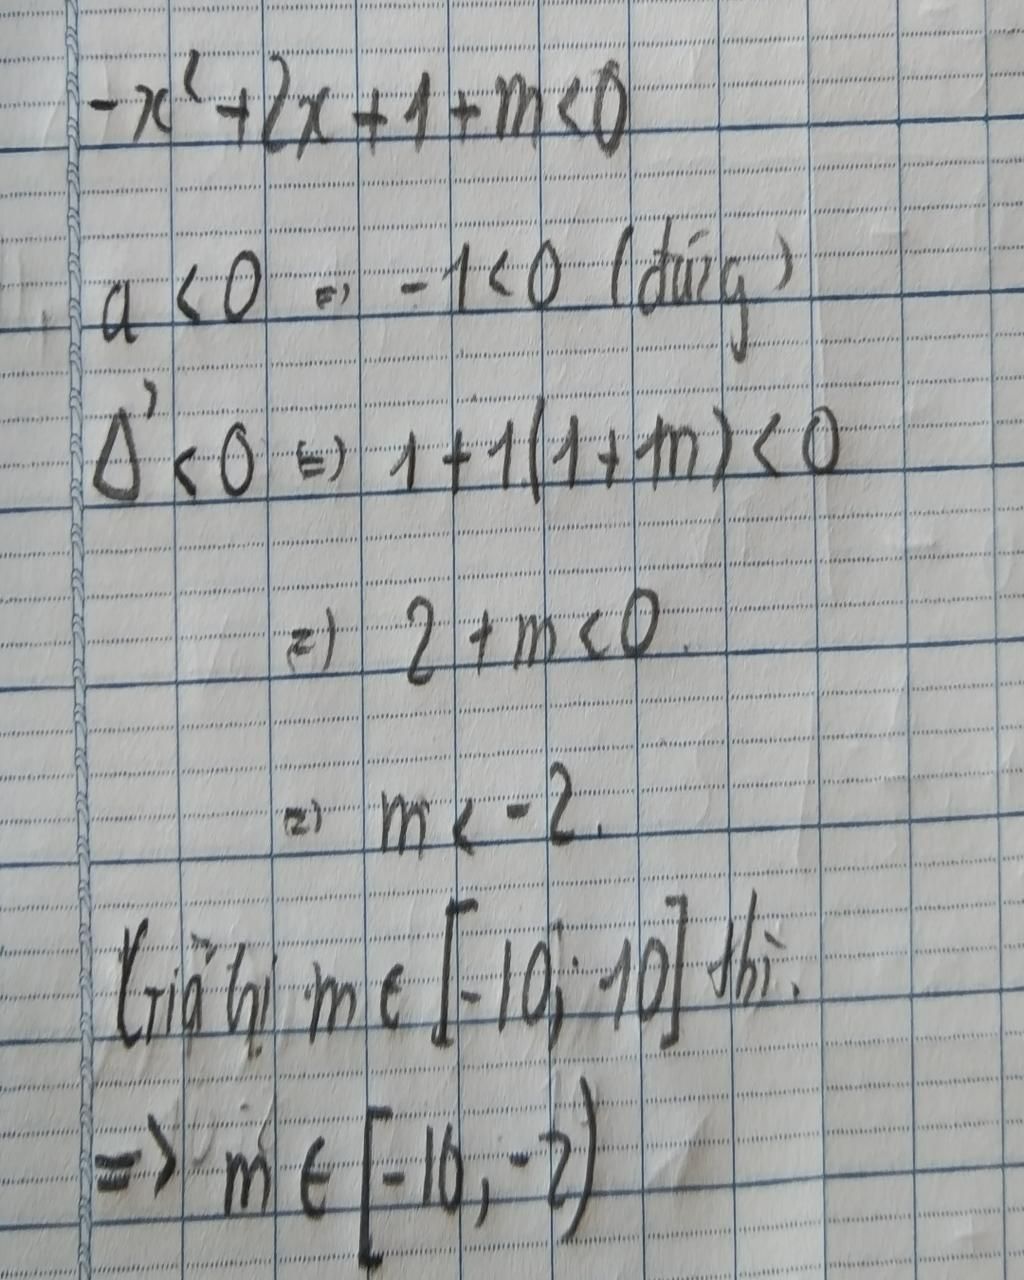 -x² + 2x + 1 + m < 0
a < 0 => -1 < 0 (đúng)
Δ' < 0 => 1 + 1(1 + m) < 0
=> 2 + m < 0.
=> m < -2.
Giá trị m ∈ [-10; 10] thì.
=> m ∈ [-10, -2)